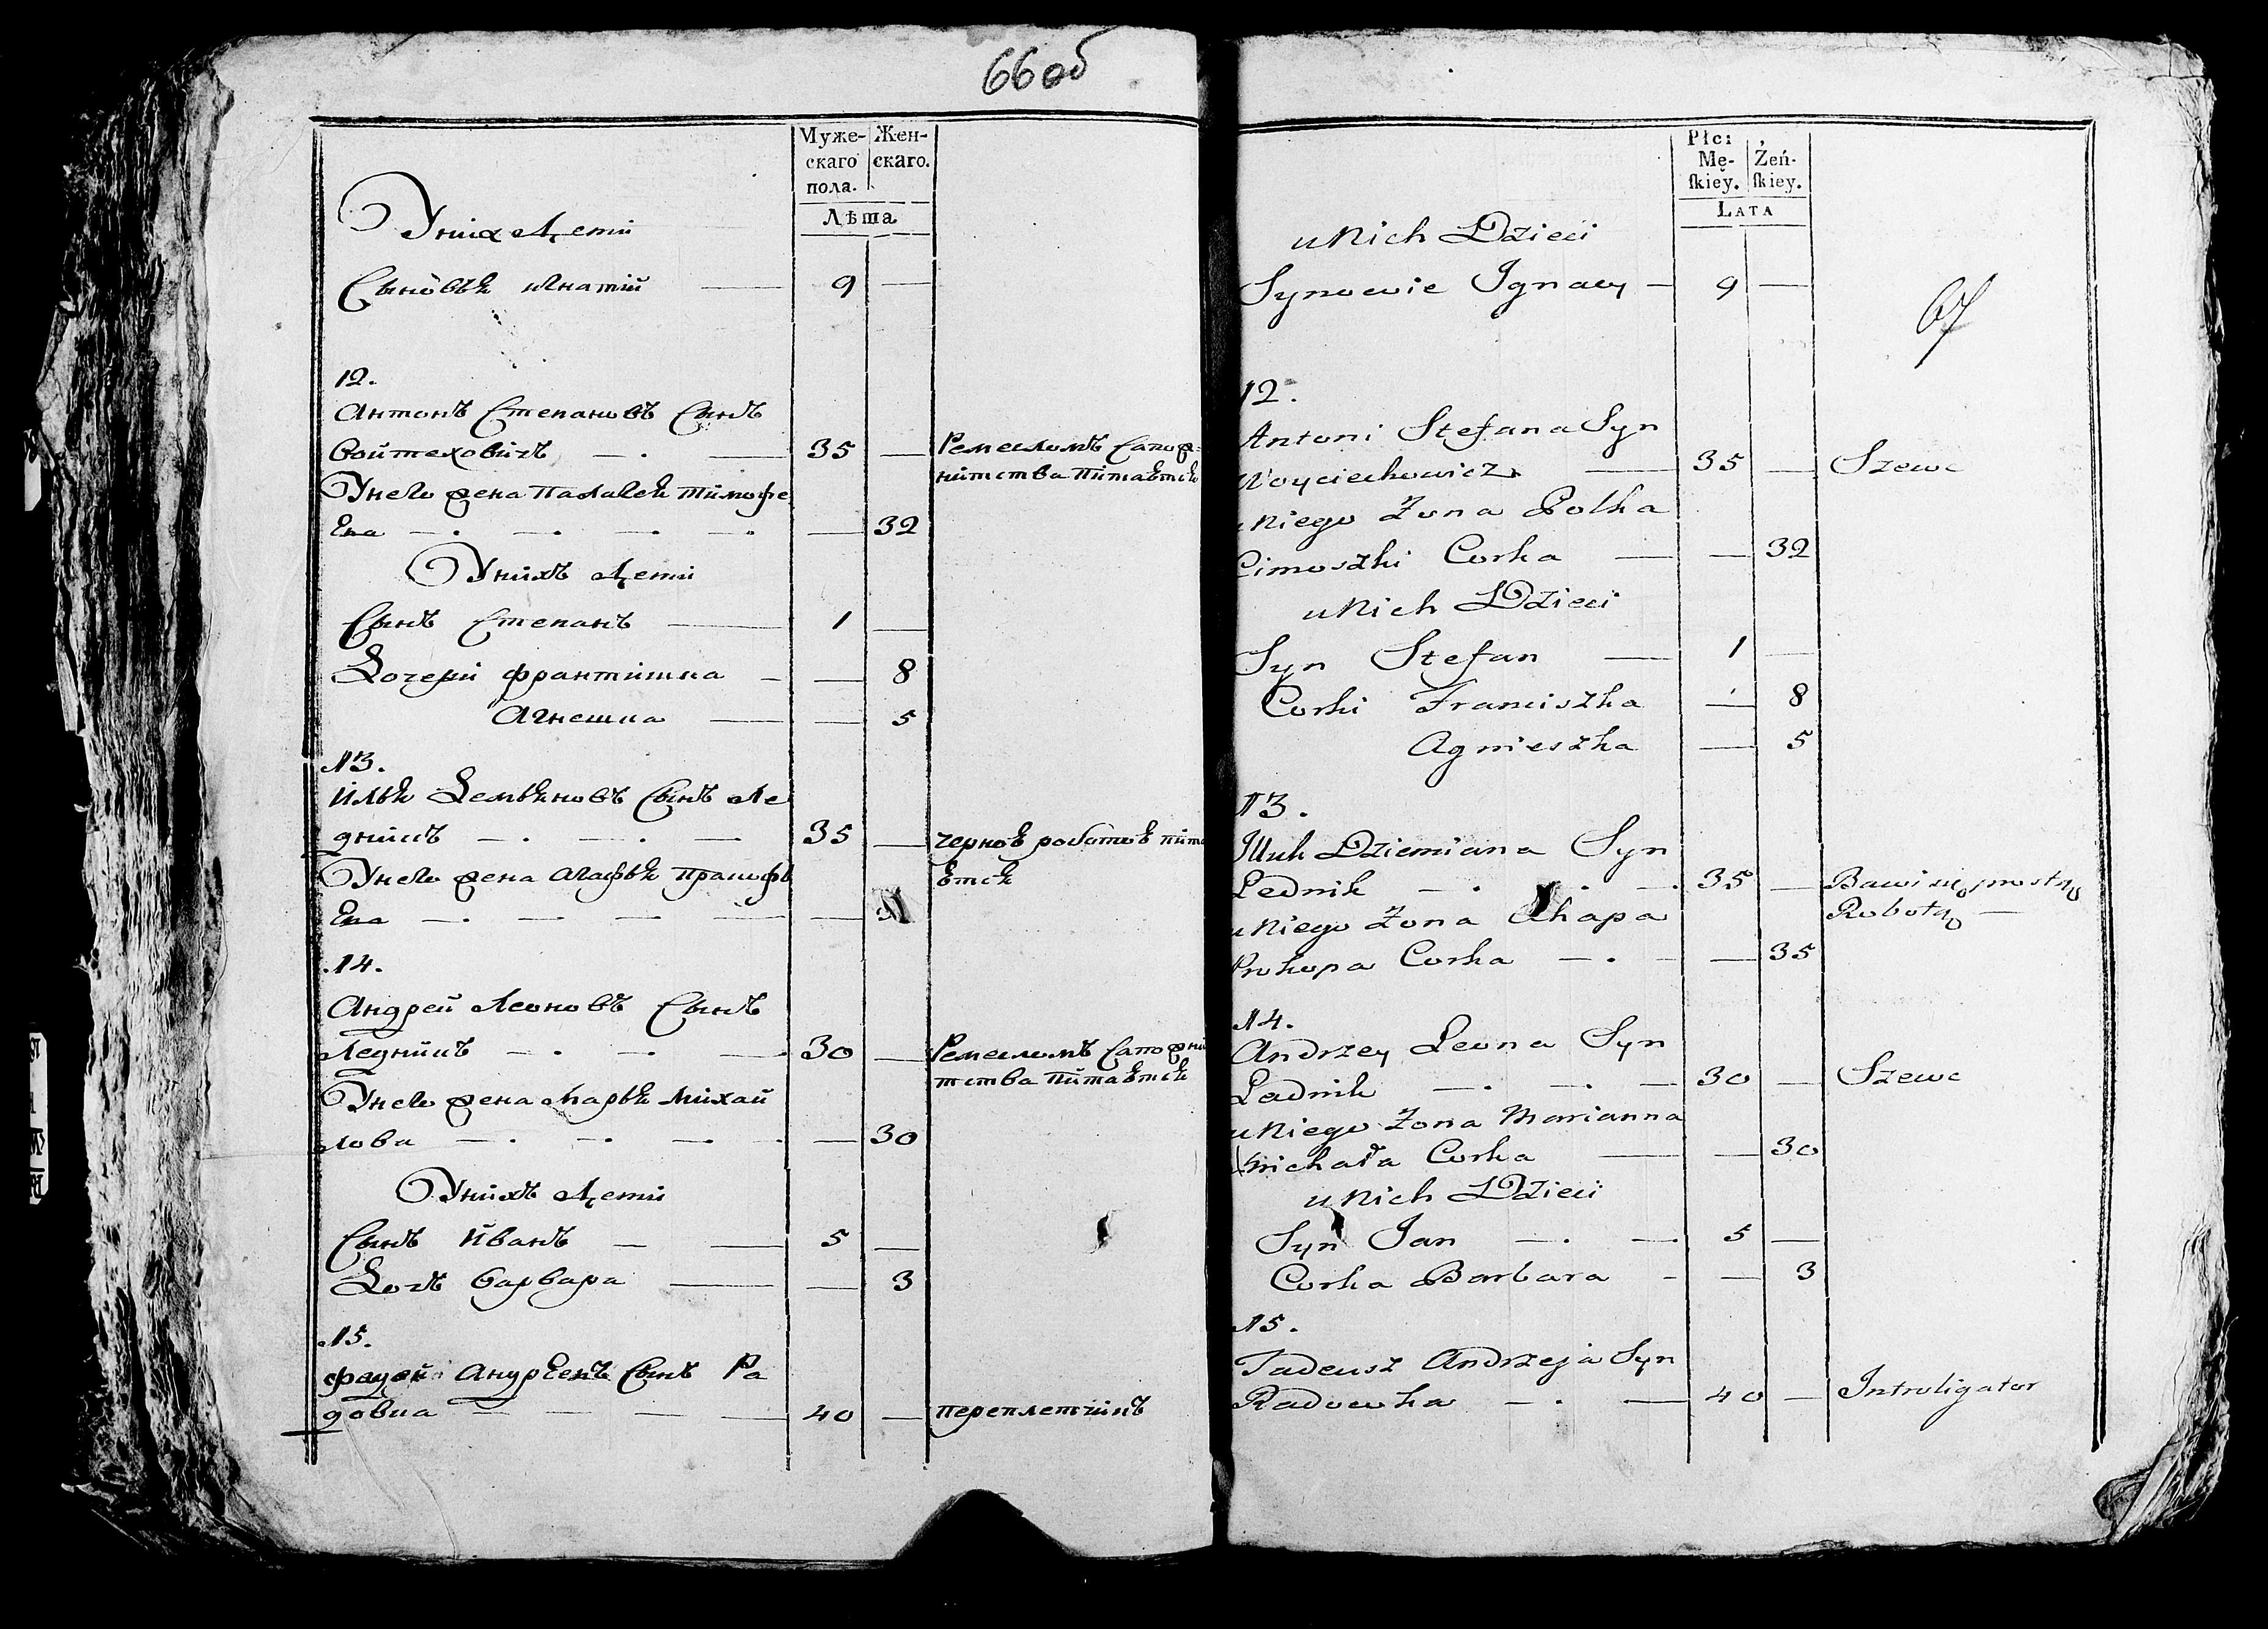 66 об
Муже-
скаго
пола.
Жен-
скаго.
Лѣта
У них Дети
Сыновья игнатий — 9 —
12.
Антонъ Степановъ Сынъ
Войтеховичъ — 35 — Ремесломъ сапож=
У него жена Палагея Тимофе
нитства питается
ева — — 32
У нихъ Дети
Сынъ Степанъ — 1 —
Дочери франтишка — — 8
Агнешка — — 5
13.
Илья Демьяновъ Сынъ Ле
дникъ — 35 — черной работой пита
У него жена Агафья Пракофь
ется
ева — —
14.
Андрей Леоновъ Сынъ
Ледникъ — 30 — Ремесломъ сапожни
тства питается
У него жена Марья Михай
лова — — 30
У нихъ Дети
Сынъ Иванъ — 5 —
Дочь Варвара — — 3
15.
фадей Андреевъ Сынъ Ра
довка — 40 — переплетчикъ
Płci
Mę-
ſkiey.
Żeń-
ſkiey.
LATA
u Nich Dzieci
Synowie Ignacy — 9 —
67
12.
Antoni Stefana Syn
Woyciechowicz — 35 — Szewc
u Niego Żona Polka
Cimoszki Corka — — 32
u Nich Dzieci
Syn Stefan — 1 —
Corki Franciszka — 8
Agnieszka — 5
13.
Illuk Dziemiana Syn
Lednik — . — . 35 — Bawi się prostą
u Niego Żona Ahapa
Robotą —
Prokopa Corka — . — — 35
14.
Andrzey Leona Syn
Ladnik — . — . — 30 — Szewc
u Niego Żona Marianna
Michała Corka — — 30
u Nich Dzieci
Syn Jan — . — . 5 —
Corka Barbara — — 3
15.
Tadeusz Andrzeja Syn
Radowka — . — 40 — Introligator